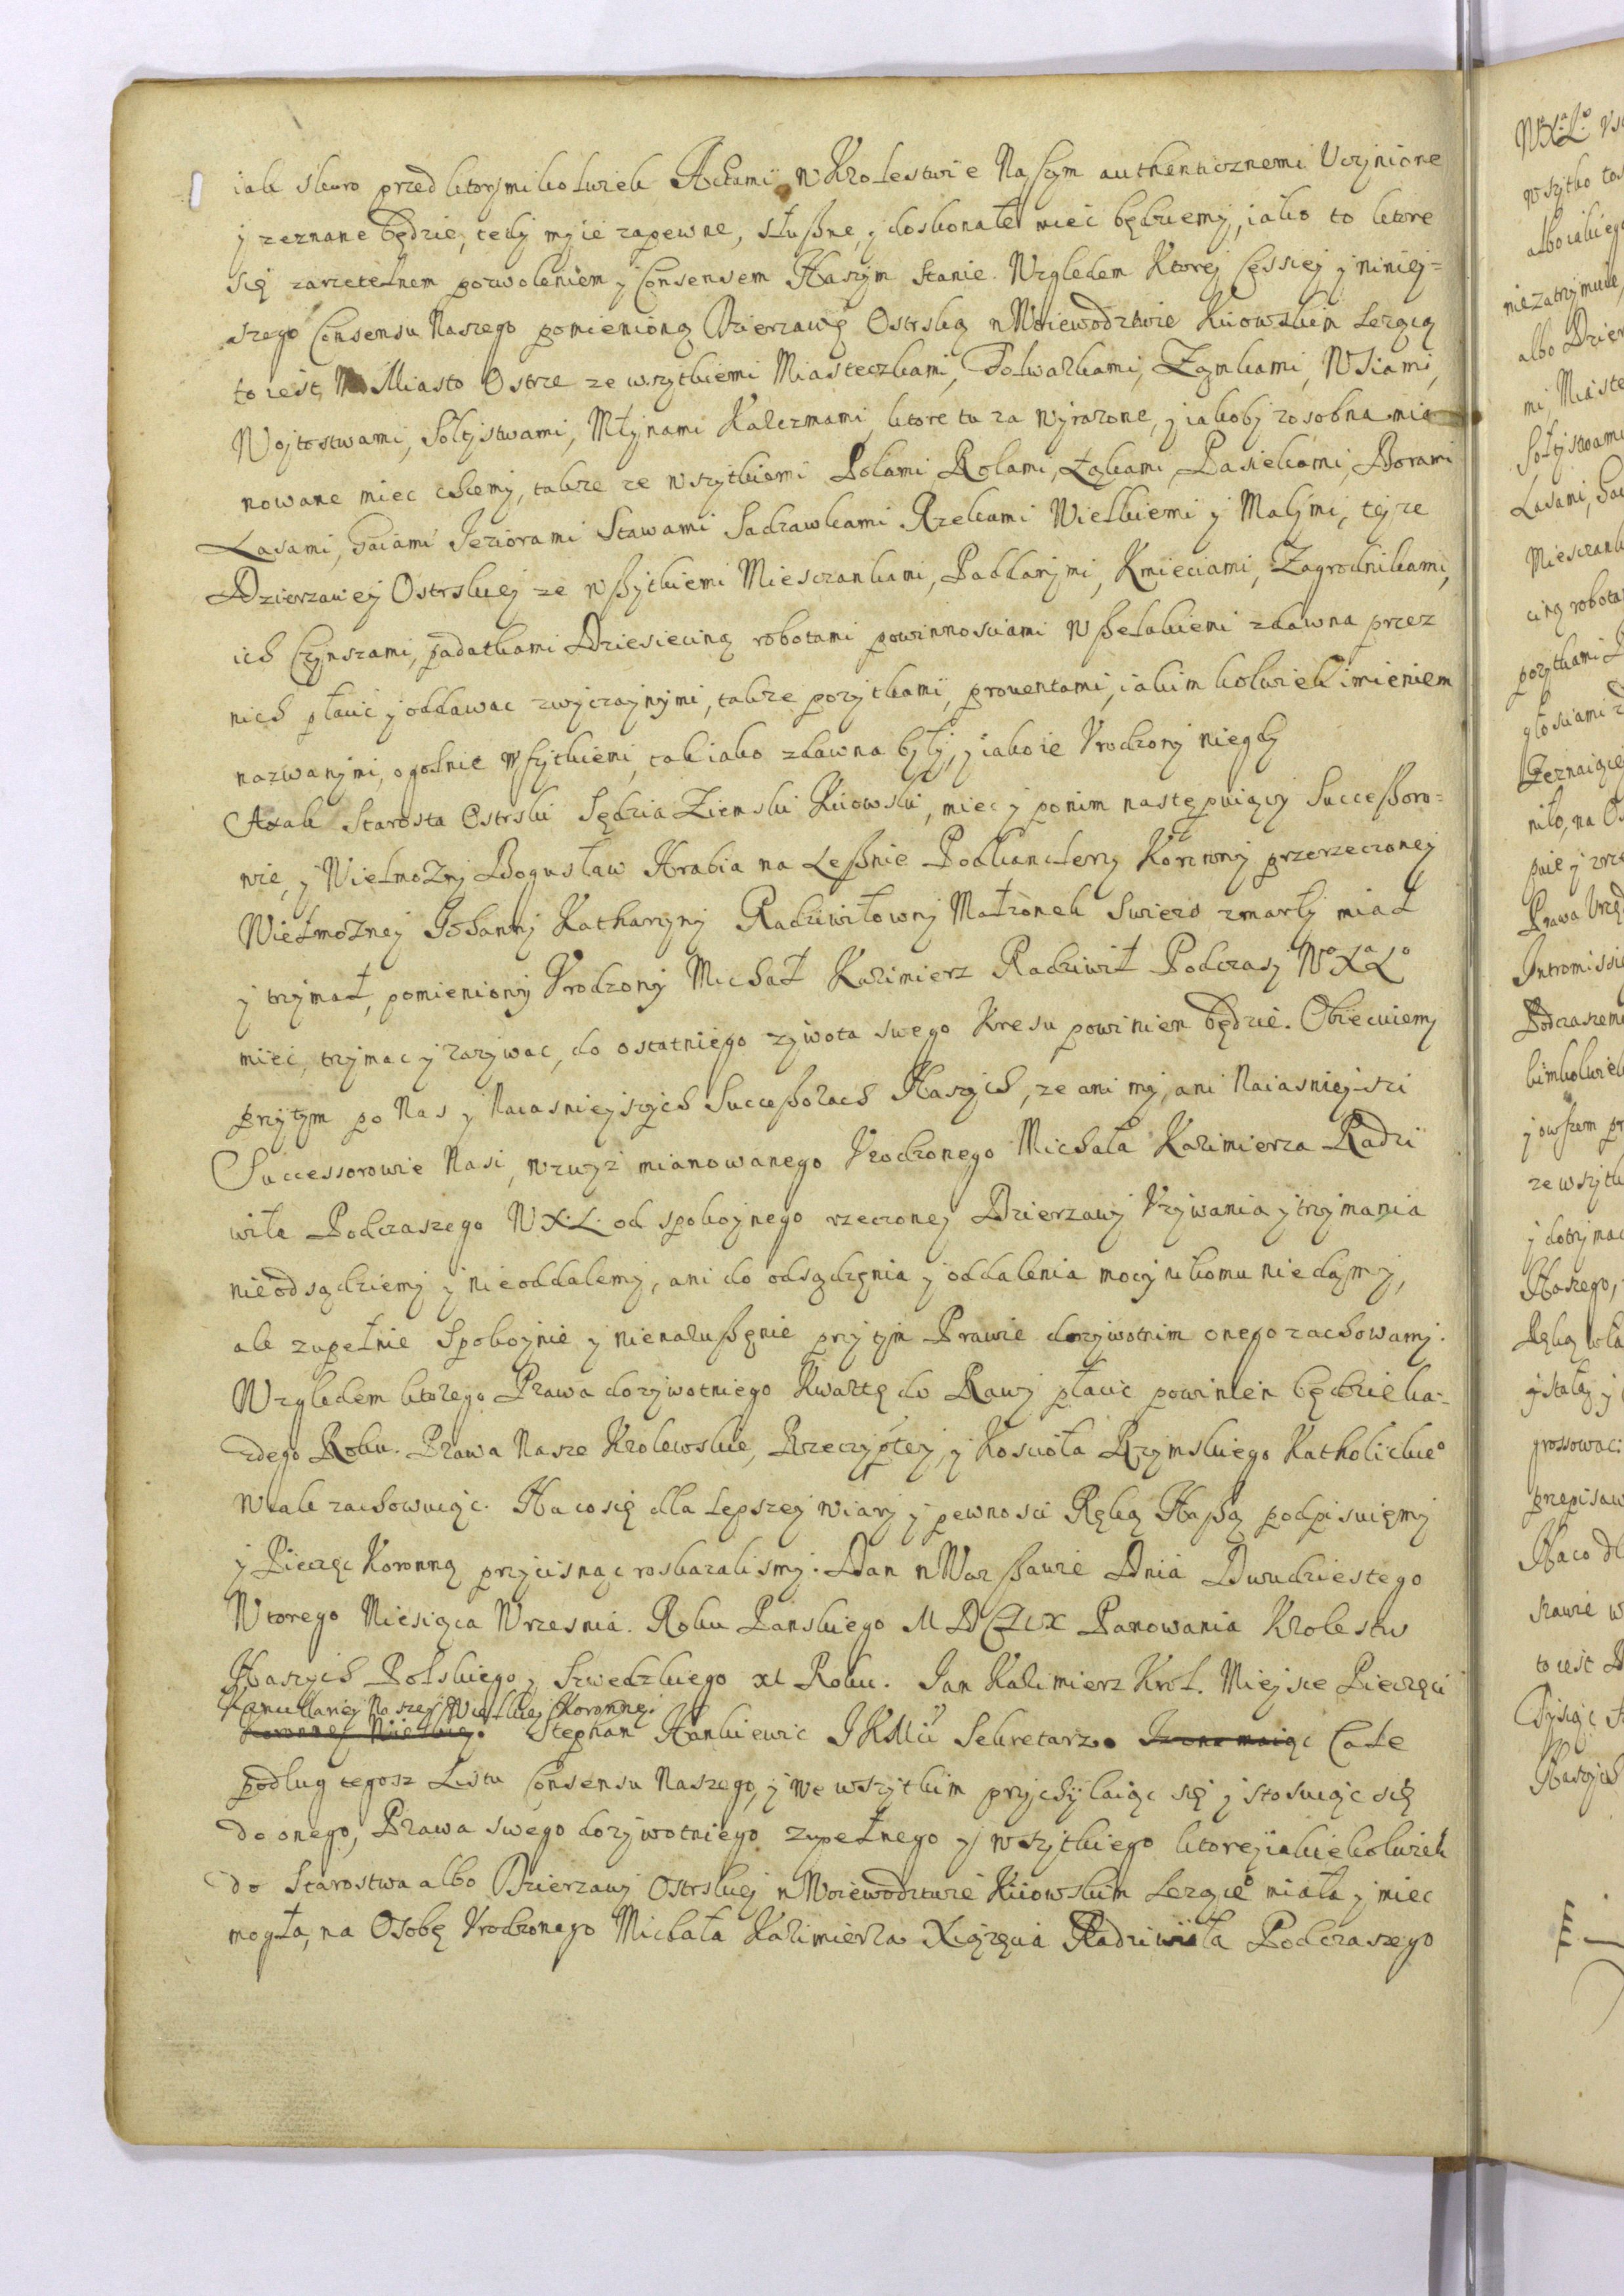 iak skoro przed ktorymikolwiek Actami w Krolestwie Naszym authenticznemi Uczynione
y zeznane będzie, tedy my ie zapewne, słuszne, y doskonałe miec będziemy, iako to ktore
się zarzetelnem pozwoleniem y Consensem Naszym stanie. Względem Ktorej Cessiej y niniej=
szego Consensu Naszego pomienioną Dzierzawę Ostrską w Woiewodztwie Kiiowskim Lezącą
to iest Miasto Ostrze ze wszytkiemi Miasteczkami, Folwarkami, Zamkami, Wsiami,
Wojtostwami, Sołtystwami, Młynami Karczmami, ktore tu za wyrazone, y iakoby zosobna mia
nowane miec chcemy, takze ze wszytkiemi Polami Rolami, Łąkami, Pasiekami, Borami
Lasami, Gaiami Jeziorami Stawami Sadzawkami Rzekami Wielkiemi y Małymi, tejze
Dzierzawej Ostrskiej ze wszytkiemi Miesczankami, Poddanymi, Kmieciami, Zagrodnikami,
ich Czynszami, podatkami Dziesieciną robotami powinnosciami wszelakiemi zdawna przez
nich płacic y oddawac zwyczajnymi, takze pozytkami, prouentami, iakimkolwiek imieniem
nazwanymi, ogolnie wszytkiemi, tak iako zdawna były, y iako ie Urodzony niegdy
Axak Starosta Ostrski Sędzia Ziemski Kiiowski, miec y ponim następuiący Successoro=
wie, y Wielmozny Bogusław Hrabia na Lesznie Podkanclerzy Koronny przerzeczonej
Wielmoznej Johanny Katharzyny Radziwiłowny Małzonek swiezo zmarły miał
y trzymał, pomieniony Urodzony Michał Kazimierz Radziwił Podczaszy Wo Xa Lo
miec, trzymac y zazywac, do ostatniego zywota swego Kresu powinien będzie. Obiecuiemy
przytym po Nas y Naiasniejszych Successorach Naszych, ze ani my, ani Naiasniejszi
Successorowie Nasi, wzwyz mianowanego Urodzonego Michała Kazimierza Radzi
wiła Podczaszego W.X.L. od spokojnego rzeczonej Dzierzawy Uzywania y trzymania
nieodsądziemy y nieoddalemy, ani do odsądzenia y oddalenia mocy nikomu niedajmy,
ale zupełnie spokojnie y nienaruszenie przy tym Prawie dozywotnim onego zachowamy.
Względem ktorego Prawa dozywotniego Kwartę do Rawy płacic powinien będzie ka=
zdego Roku. Prawa Nasze Krolewskie, Rzeczyptej, y Kosciła Rzymskiego Katholickieo
wcale zachowuiąc. Na co się dla lepszej wiary y pewnosci Ręką Naszą podpisuięmy
y Pieczęc Koronną przycisnąc roskazalismy. Dan w Warszawie Dnia Dwudziestego
Wtorego Miesiąca Wrzesnia. Roku Panskiego M D C L I X Panowania Krolestw
Naszych Polskiego y Szwedzkiego xi Roku. Jan Kazimierz Krol. Miejsce Pieczęci
Kancellariej Naszej Wielkiej Koronnej.
Stephan Hankiewic JKMci Sekretarz. Całe
podług tegosz Listu Consensu Naszego, y we wszytkim przychylaiąc się y stosuiąc się
do onego, Prawa swego dozywotniego zupełnego y wszytkiego ktore iakiekolwiek
do Starostwa albo Dzierzawy Ostrskiej w Woiewodztwie Kiiowskim Lezące miała y miec
mogła, na Osobę Urodzonego Michała Kazimierza Xiązęcia Radziwiła Podczaszego